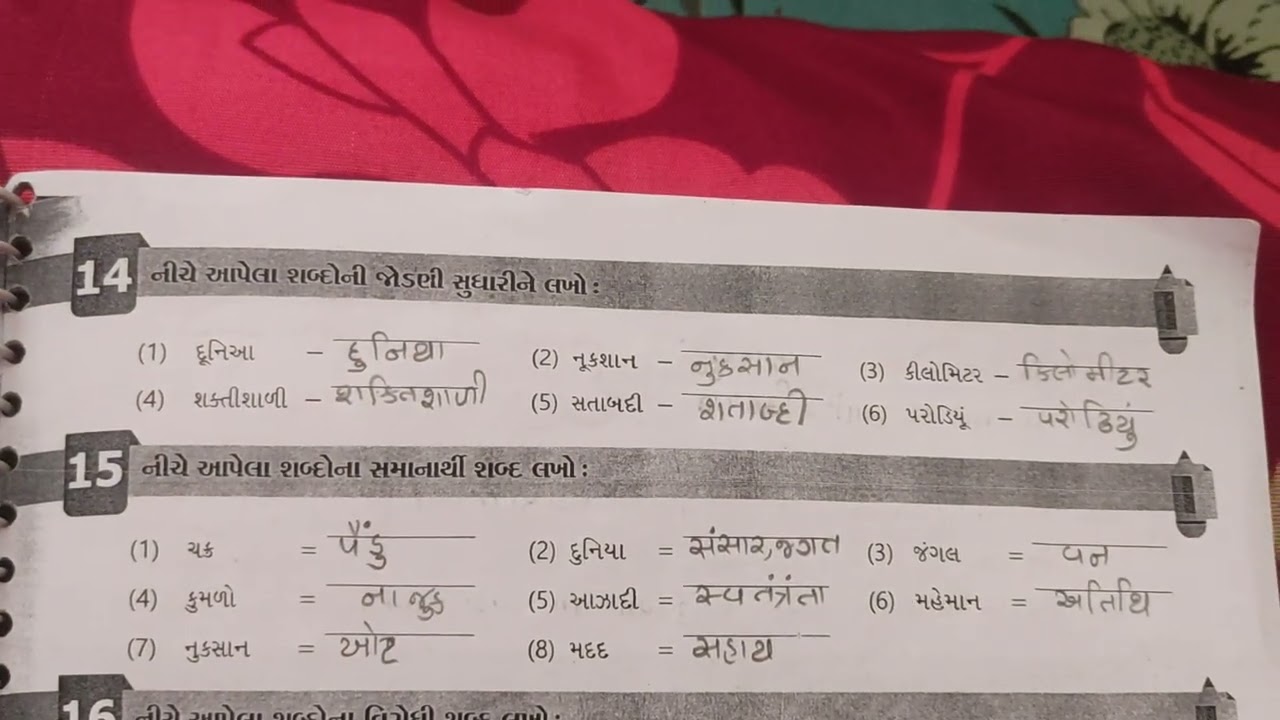 14 નીચે આપેલા શબ્દોની જોડણી સુધારીને લખો :
(1) દૂનિઆ – દુનિયા (2) નૂકશાન – નુકસાન (3) કીલોમિટર – કિલોમીટર
(4) શક્તીશાળી – શક્તિશાળી (5) સતાબદી – શતાબ્દી (6) પરોડિયૂં – પરોઢિયું
15 નીચે આપેલા શબ્દોના સમાનાર્થી શબ્દ લખો :
(1) ચક્ર = પૈંડુ (2) દુનિયા = સંસાર,જગત (3) જંગલ = વન
(4) કુમળો = નાજુક (5) આઝાદી = સ્વતંત્રંતા (6) મહેમાન = અતિથિ
(7) નુકસાન = ખોટ (8) મદદ = સહાય
16 નીચે આપેલા શબ્દોના વિરોધી શબ્દ લખો :